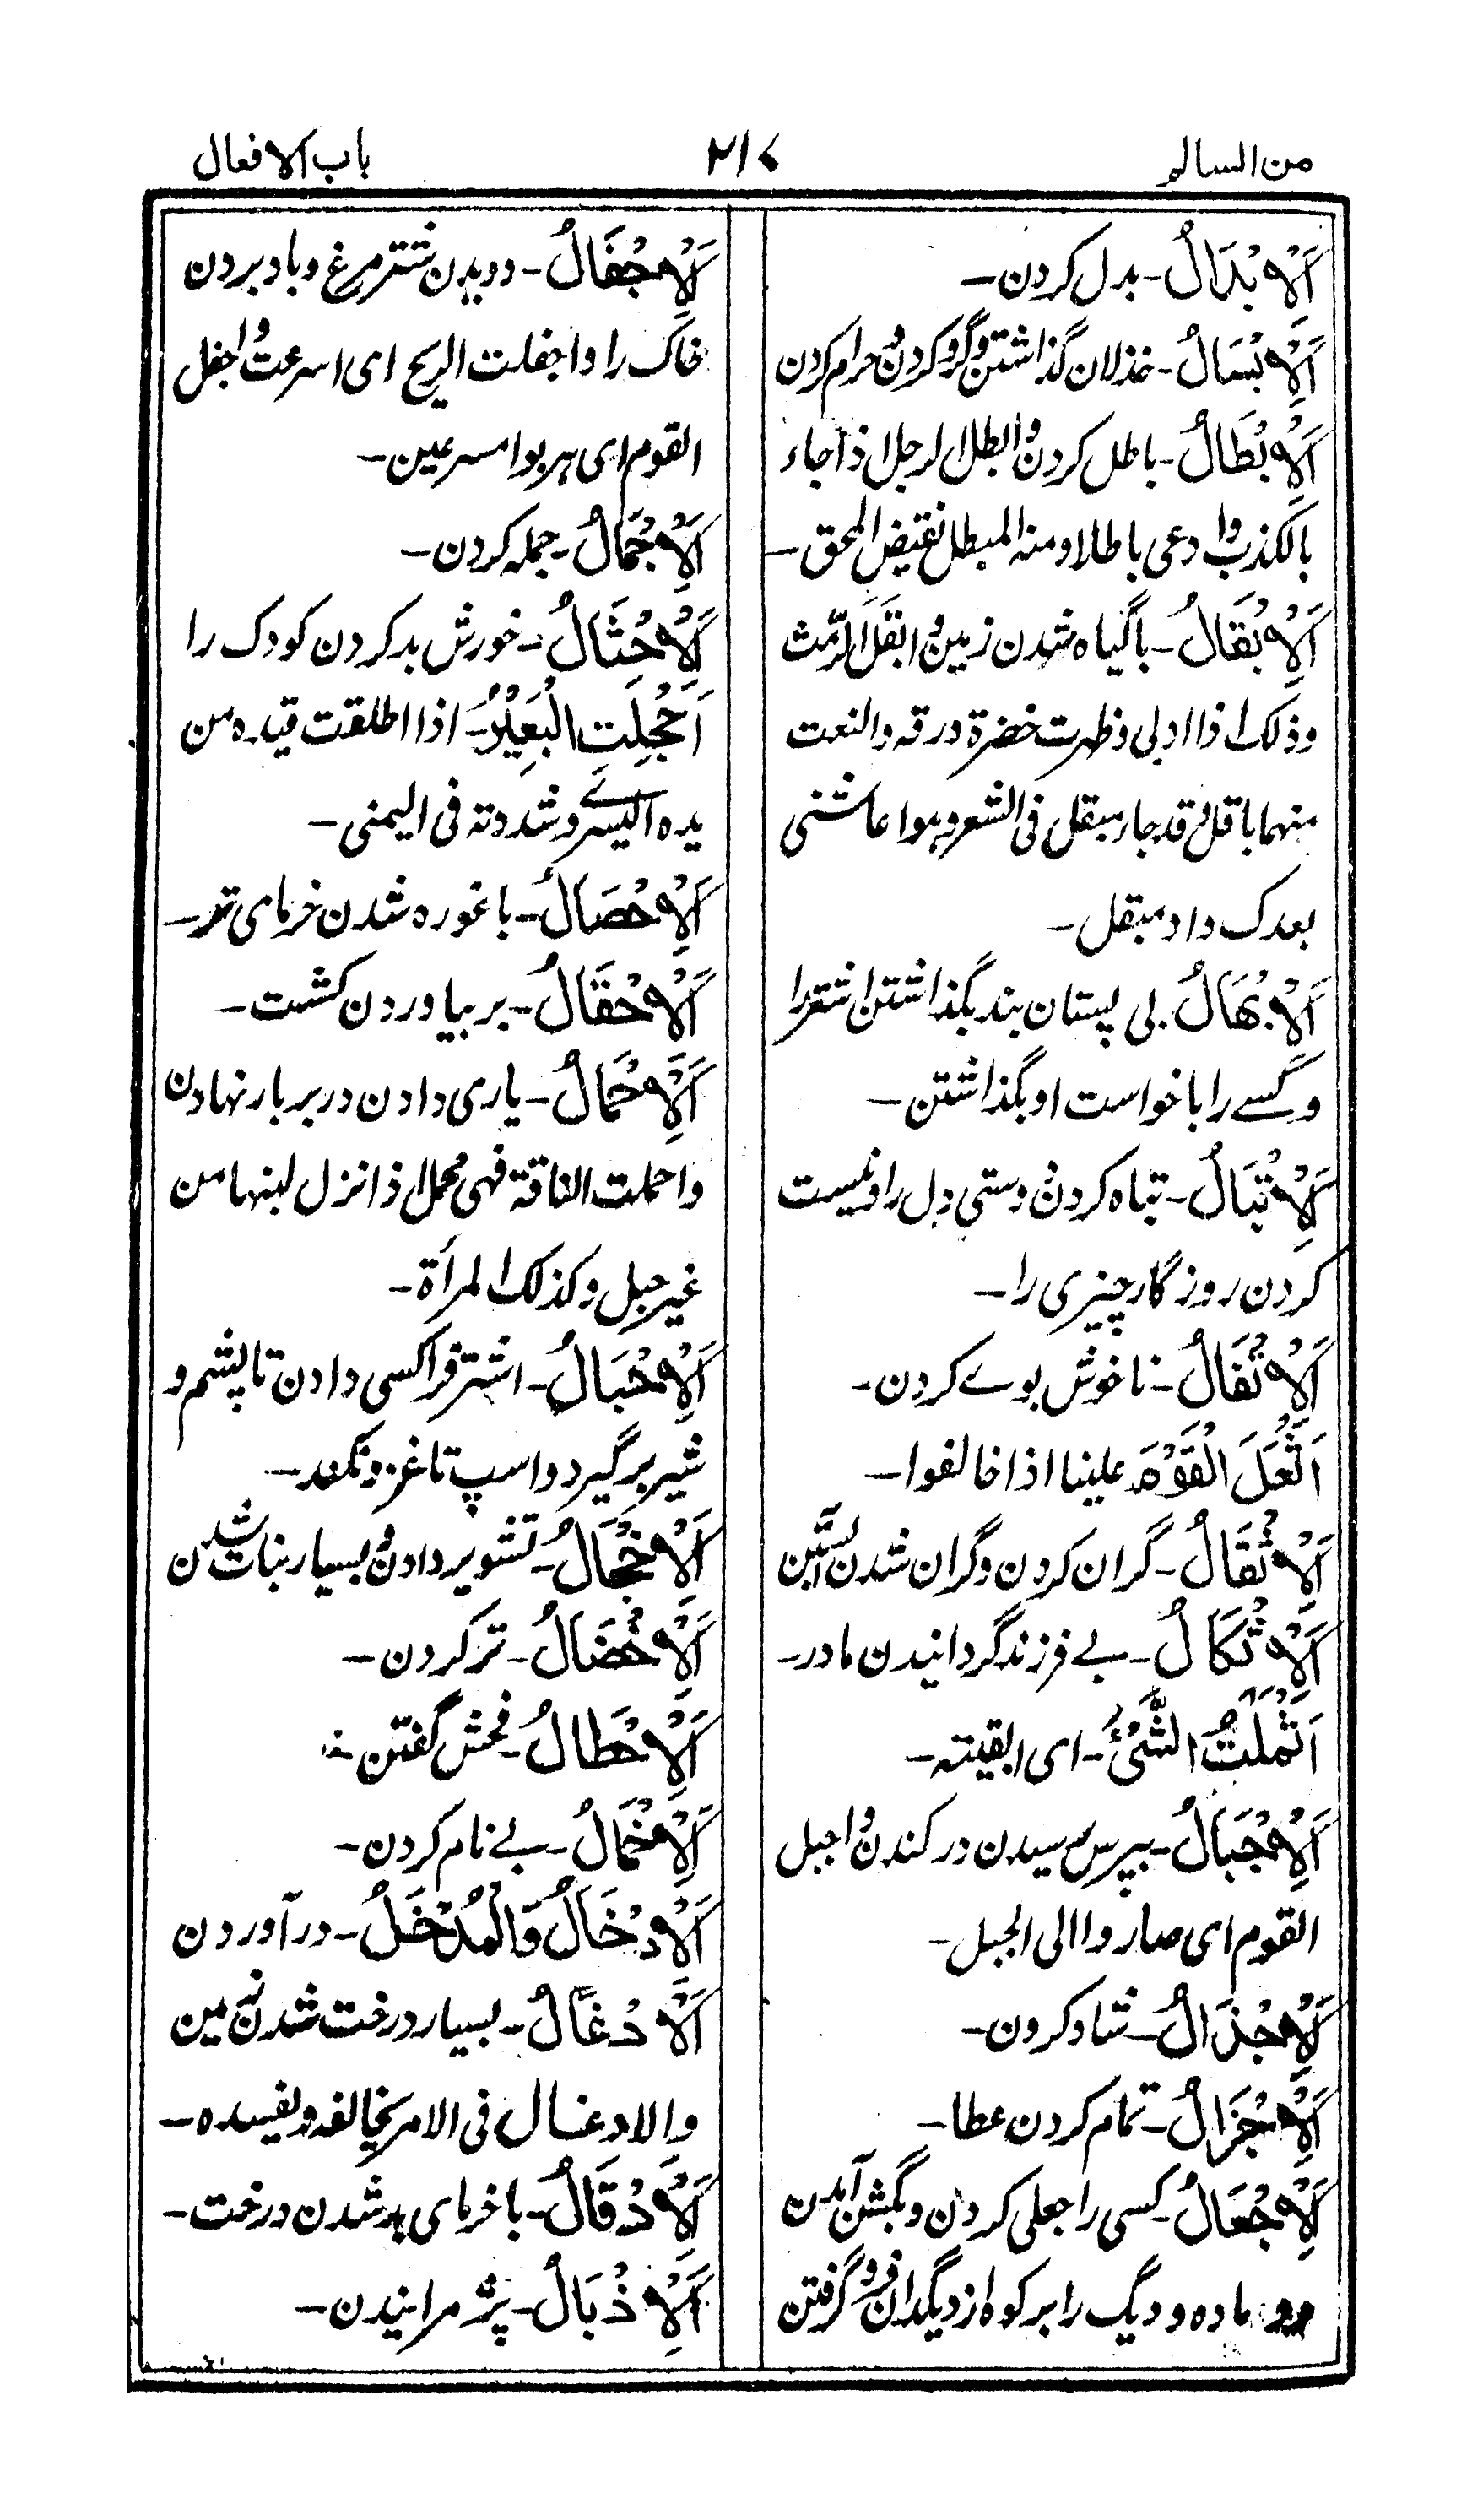 من السالم
۲۱۷
باب الافعال
اَلْاِبْدَالُ - بدل کردن -
اَلْاِبْسَالُ - خذلان گذاشتن و گرو کردن و حرام کردن
اَلْاِبْطَالُ - باطل کردن و ابطل الرجل اذا جاء
بالکذب و ادعی باطلا و منه المبطل نقیض المحق -
اَلْاِبْقَالُ - باگیاه شدن زمین و ابقَلَ الرّمث
و ذلک اذا ادبی و ظهرت خضرة ورقه والنعت
منهما باقل و قد جاء مبقل فی الشعر و هو اعاشنی
بعدک واد مبقل -
اَلْاِبْهَالُ - بی پستان بند بگذاشتن اشتر را
و کسے را باخواست او بگذاشتن -
اَلْاِتْبَالُ - تباه کردن دوستی دل را و نیست
کردن روزگار چیزی را -
اَلْاِتْفَالُ - ناخوش بوے کردن -
اَثْعَلَ الْقَوْمُ علینا اذا خالفوا -
اَلْاِثْقَالُ - گران کردن و گران شدن آبستن
اَلْاِثْکَالُ - بے فرزند گردانیدن مادر -
اَثْمَلْتُ الشَّیْءَ - ای ابقیته -
اَلْاِجْبَالُ - بپرس سیدن در کندن و اجبل
القوم ای صاروا الی الجبل -
اَلْاِجْذَالُ - شاد کردن -
اَلْاِجْزَالُ - تمام کردن عطا -
اَلْاِجْعَالُ - کسی را جعلی کردن و بگشن آمدن
ماده و دیگ را برکوه از دیگدان فرو گرفتن
اَلْاِجْفَالُ - دویدن شترمرغ و باد بردن
خاک را و اجفلت الریح ای اسرعت و اجفل
القوم ای هربوا مسرعین -
اَلْاِجْمَالُ - جمله کردن -
اَلْاِحْثَالُ - خورش بد کردن کودک را
اَحْجَلْتُ الْبَعِیْرَ - اذا اطلقت قیده من
یده الیسرے و شددته فی الیمنی -
اَلْاِحْصَالُ - باغوره شدن خرمای تر -
اَلْاِحْقَالُ - بر بیاوردن کشت -
اَلْاِحْمَالُ - یاری دادن در بر بار نهادن
و احملت الناقة فهی محمل اذا نزل لبنها من
غیر حبل و کذلک المرأة -
اَلْاِخْبَالُ - اشتر فرا کسی دادن تا پشم و
شیر برگیرد و اسپ تا غزو کند -
اَلْاِخْجَالُ - تشویر دادن و بسیار نبات شدن
اَلْاِخْضَالُ - تر کردن -
اَلْاِخْطَالُ - فحش گفتن -
اَلْاِخْمَالُ - بے نام کردن -
اَلْاِدْخَالُ وَالْمُدْخَلُ - در آوردن
اَلْاِدْغَالُ - بسیار درخت شدن زمین
والادغال فی الامر یخالفه و یفسده -
اَلْاِدْقَالُ - با خرمای بد شدن درخت -
اَلْاِذْبَالُ - پژمرانیدن -